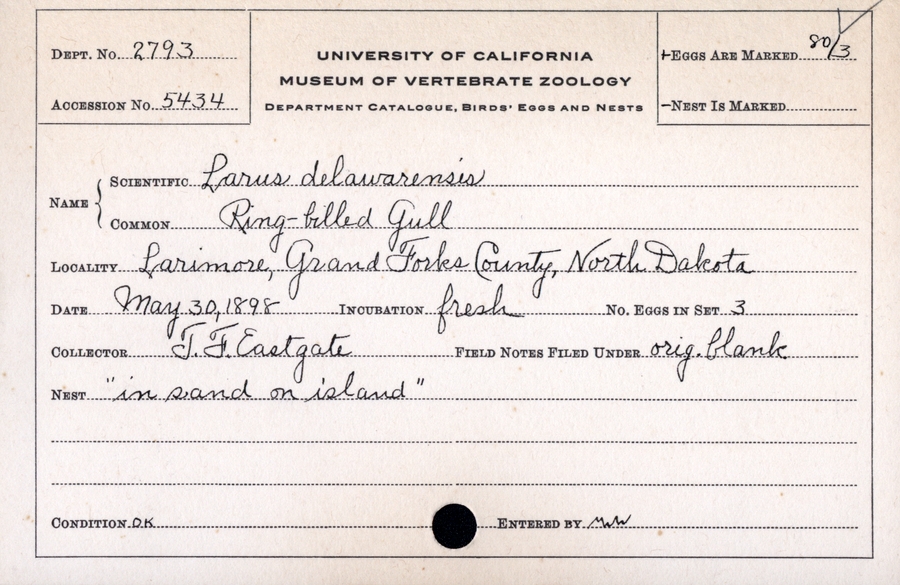 Dept. No. 2793
Accession No. 5434
UNIVERSITY OF CALIFORNIA
MUSEUM OF VERTEBRATE ZOOLOGY
Department Catalogue, Birds' Eggs and Nests
Eggs Are Marked 80/3
Nest Is Marked
Name { Scientific Larus delawarensis
Common Ring-billed Gull
Locality Larimore, Grand Forks County, North Dakota
Date May 30, 1898 Incubation fresh No. Eggs in Set 3
Collector T. F. Eastgate Field Notes Filed Under orig. blank
Nest "in sand on island"
Condition OK Entered by